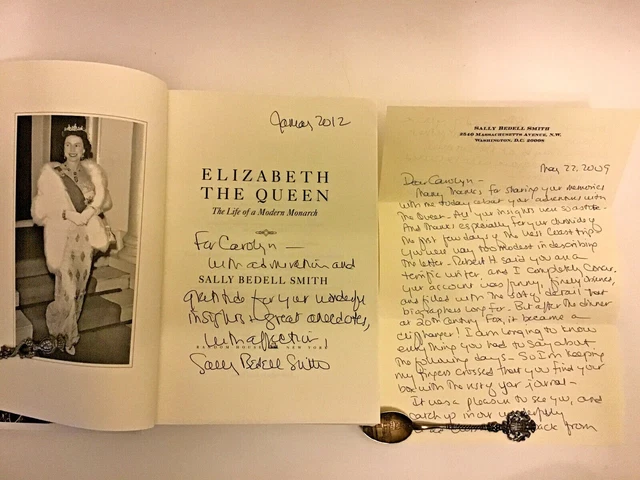 January 2012
ELIZABETH
THE QUEEN
The Life of a Modern Monarch
For Carolyn —
with admiration and
SALLY BEDELL SMITH
gratitude for your wonderful
insights & great anecdotes,
With affection,
RANDOM HOUSE NEW YORK
Sally Bedell Smith
SALLY BEDELL SMITH
2840 MASSACHUSETTS AVENUE, N.W.
WASHINGTON, D.C. 20008
May 22, 2009
Dear Carolyn —
Many thanks for sharing your memories
with me today about your adventures with
The Queen. All your insights were so astute.
And thanks especially for your chronicle of
the first few days of the West Coast trip.
You were way too modest in describing
the letter. Robert H. said you are a
terrific writer, and I completely concur.
Your account was funny, finely
and filled with the sort of detail that
biographers long for. But after the dinner
at 20th Century Fox it became a
cliffhanger! I am longing to know
everything you had to say about
the following days — So I'm keeping
my fingers crossed that you find your
box with the rest of your journal —
It was a pleasure to see you, and
catch up in our
back from